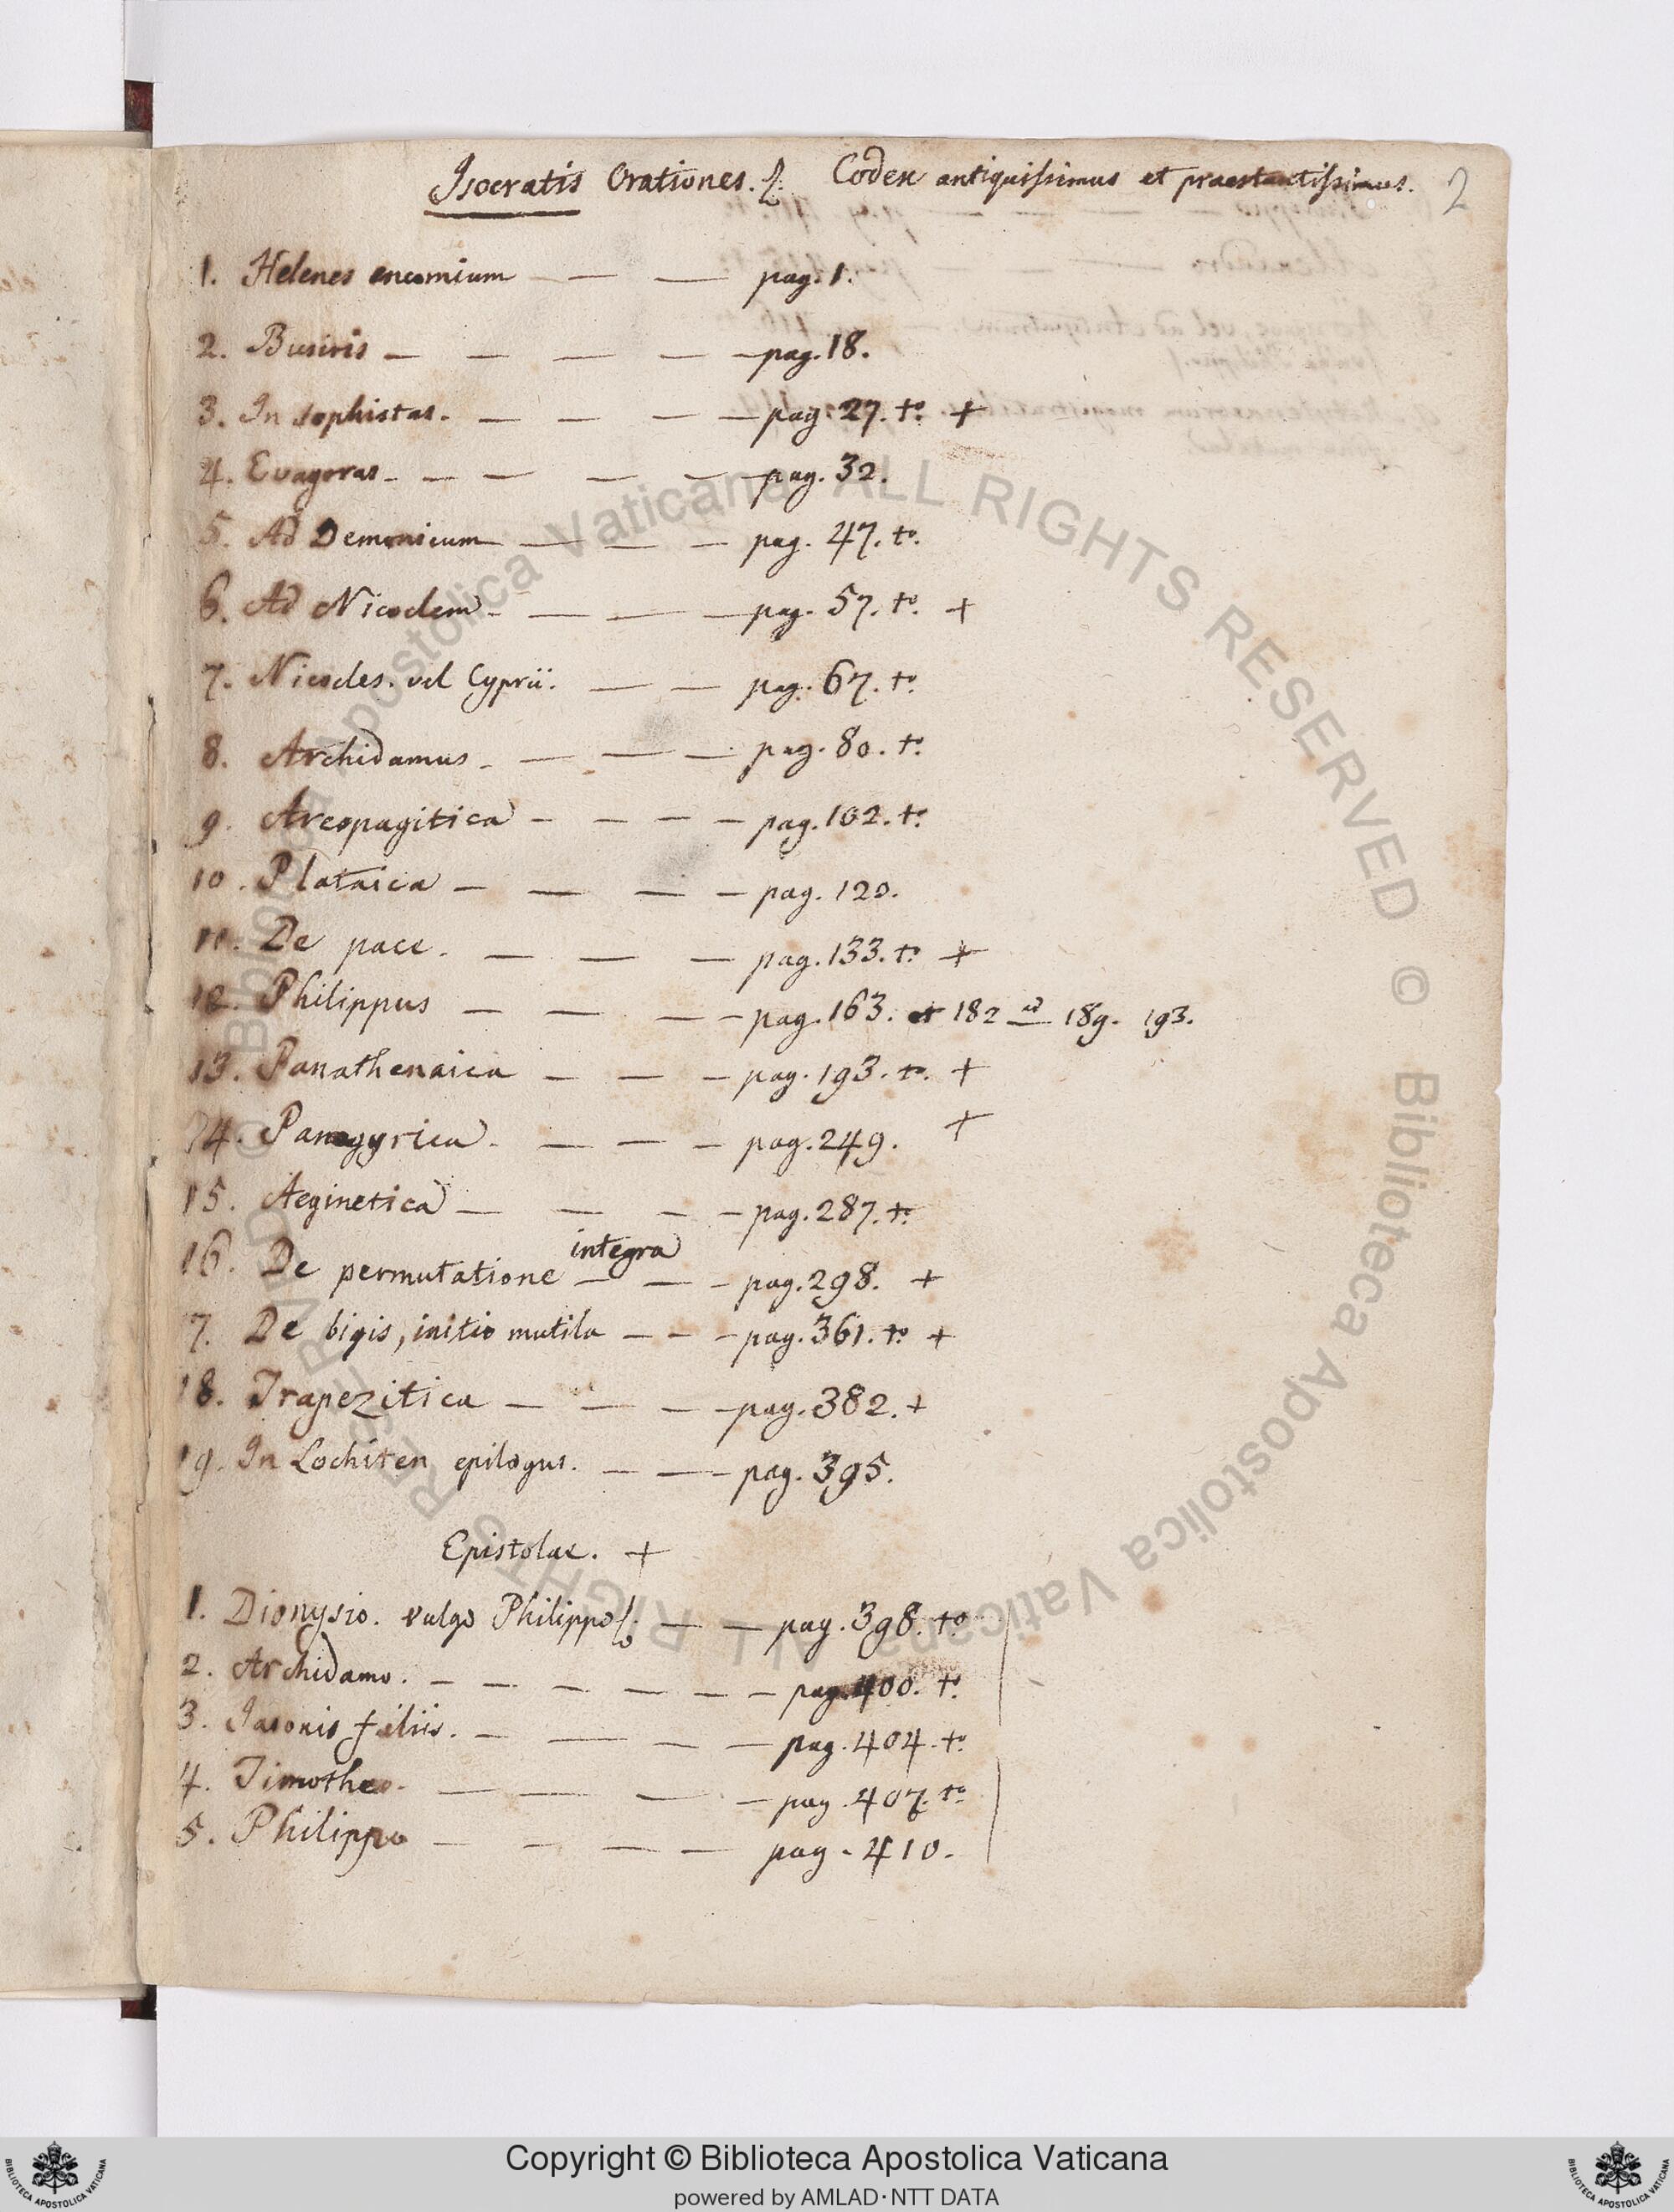 Isocratis Orationes. Codex antiquissimus et praestantissimus. 2
1. Helenes encomium — — pag. 1.
2. Busiris — — — — pag. 18.
3. In sophistas. — — — pag. 27. to. +
4. Evagoras — — — — pag. 32.
5. Ad Demonicum — — — pag. 47. to.
6. Ad Nicoclem — — — pag. 57. to. +
7. Nicocles. vel Cyprii. — — pag. 67. to.
8. Archidamus — — — pag. 80. to.
9. Areopagitica — — — — pag. 102. to.
10. Plataica — — — — pag. 120.
11. De pace. — — — pag. 133. to. +
12. Philippus — — — — pag. 163. et 182 ad 189. 193.
13. Panathenaica — — — pag. 193. to. +
14. Panegyrica — — — pag. 249. +
15. Aeginetica — — — — pag. 287. to.
integra
16. De permutatione — — — pag. 298. +
17. De bigis, initio mutila — — — pag. 361. to. +
18. Trapezitica — — — — pag. 382. +
19. In Lochiten epilogus. — — — pag. 395.
Epistolae. +
1. Dionysio. vulgo Philippo — — pag. 398. to.
2. Archidamo. — — — — — — pag. 400. to.
3. Iasonis filiis. — — — — pag. 404. to.
4. Timotheo. — — — — pag. 407. to.
5. Philippo — — — — pag. 410.
© Biblioteca Apostolica Vaticana ALL RIGHTS RESERVED © Biblioteca Apostolica Vaticana ALL RIGHTS RESERVED
Copyright © Biblioteca Apostolica Vaticana
powered by AMLAD·NTT DATA
BIBLIOTECA APOSTOLICA VATICANA
BIBLIOTECA APOSTOLICA VATICANA